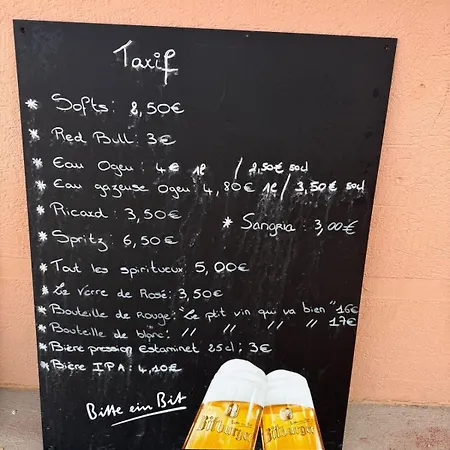 Tarif
* Softs : 2,50€
* Red Bull : 3€
* Eau Ogeu : 4€ 1l / 2,50€ 50cl
* Eau gazeuse Ogeu : 4,80€ 1l / 3,50€ 50cl
* Ricard : 3,50€
* Sangria : 3,00€
* Spritz : 6,50€
* Tout les spiritueux 5,00€
* Le verre de Rosé : 3,50€
* Bouteille de Rouge : "Le p'tit vin qui va bien" 16€
* Bouteille de blanc : " " " " 17€
* Bière pression Estaminet 25cl ; 3€
* Bière IPA : 4,10€
Bitte ein Bit
Bitburger
Bitburger